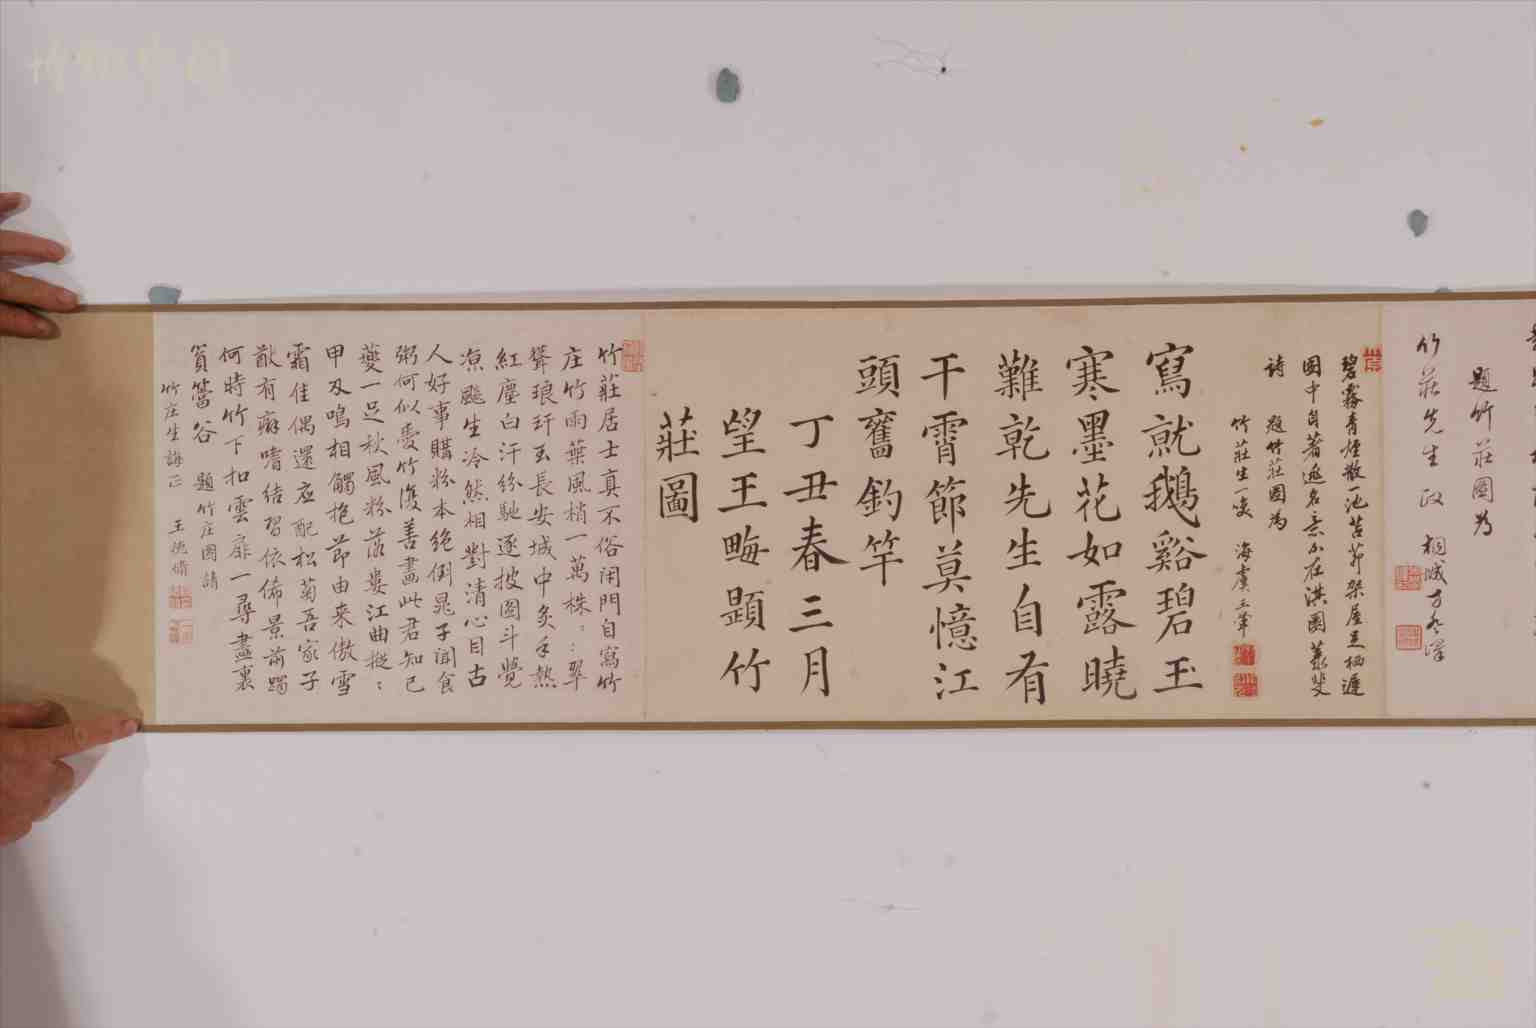 題竹莊圖為
竹莊先生政 桐城方
碧霧青煙散一池苔茆架屋足栖遲
圖中自著逃名意不在淇園菉斐
詩 題竹莊圖為
竹莊生一笑 海虞
寫就鵝谿碧玉
寒墨花如露曉
難乾先生自有
干霄節莫憶江
頭舊釣竿
丁丑春三月
望王畮題竹
莊圖
竹莊居士真不俗閑門自寫竹
庄竹雨葉風梢一萬株：：翠
聳琅玕玉長安城中炙手熱
紅塵白汗紛馳逐披圖斗覺
涼颸生冷然相對清心目古
人好事購粉本絕倒晁子聞食
粥何似愛竹復善畫此君知己
夔一足秋風粉落婁江曲摐：
甲刄鳴相觸抱節由來傲雪
霜佳偶還應配松菊吾家子
猷有癖嗜結習依俙景前躅
何時竹下扣雲扉一尋畫裏
篔簹谷 題竹庄圖請
竹庄生誨正 王
博物中国